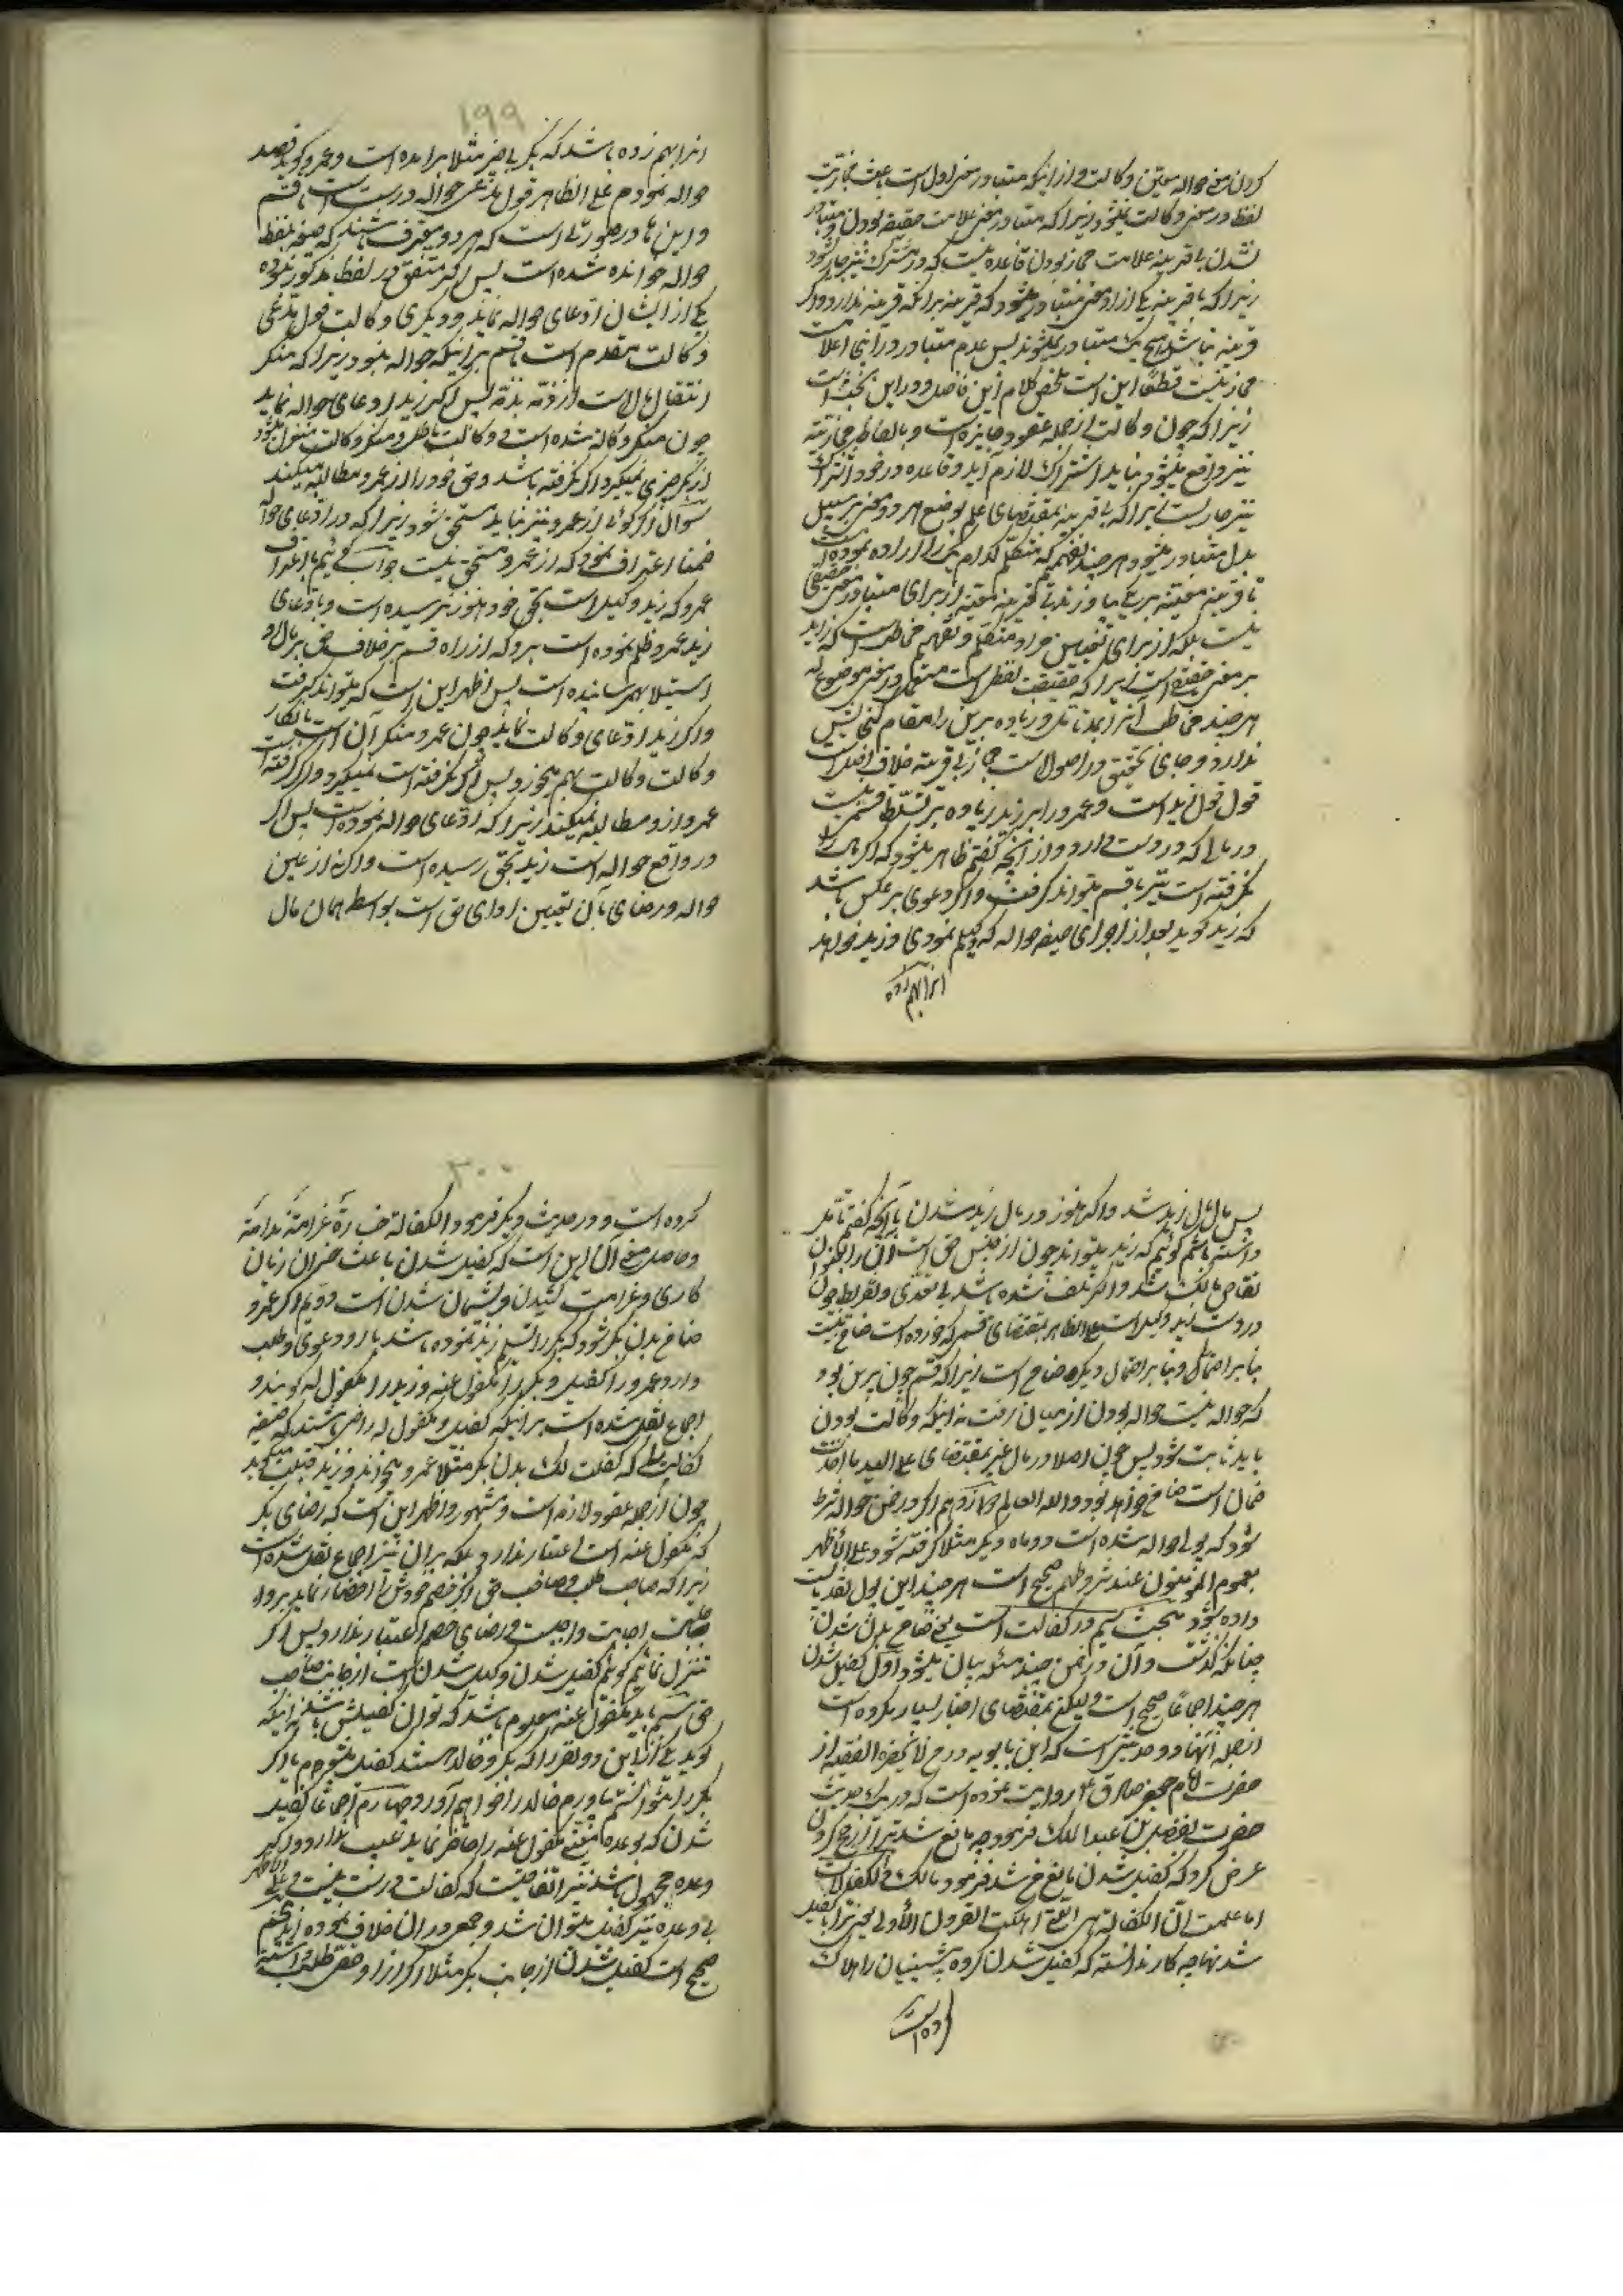 کردن معنی حواله معین وکالت و از اینکه متبادر معنی اول است باعث مجازیت
لفظ در معنی وکالت نمیشود زیرا که متبادر معنی علامت حقیقه بودن و متبادر
نشدن با قرینه علامت مجاز بودن قاعده نیست که در مشترک نیز جاری شود
زیرا که با قرینه یکی از او معنی متبادر میشود که قرینه بر آنکه قرینه ندارد و اگر
قرینه نباشد هیچ یک متبادر نمیشوند پس عدم متبادر در اینجا علامت
مجاز نیست قطعا این است ملخص کلام این فاضل و در این بحث است
زیرا که چون وکالت از جمله عقود جایزه است و بالفاظ مجازیه
نیز واقع میشود نباید اشتراک لازم آید و قاعده در خود اشتراک
نیز جاریست زیرا که بی قرینه بمقتضای علم بوضع هر دو معنی بر سبیل
بدل متبادر میشود هر چند نفهمیم که متکلم کدام یک را اراده نموده است
تا قرینه معینه بر یکی بیاورند تا قرینه معینه از برای متبادر معنی حقیقی
نیست بلکه از برای تعیین مراد متکلم و تفهیم مخاطب است که زاید
بر معنی حقیقی است زیرا که حقیقت لفظ است مستعمل در معنی موضوع له
هر چند مخاطب آنرا بداند و زیاده بر این را مقام گنجایش
ندارد و جای تحقیق در اصول است مجاز بی قرینه خلاف اصل است
قول قول زید است و عمرو را بر زید زیاده بر تسلط قسم نیست
در مالی که در دست دارد و از آنچه گفتم ظاهر میشود که اگر مال را
نگرفته است نیز با قسم میتواند گرفت و اگر دعوی بر عکس باشد
که زید گوید بعد از اجرای صیغه حواله که وکیلم نمودی و زید خواهد
انرا بهم زده
۱۹۹
انرا بهم زده باشد که بکر بی ضرر مثلا برآمده است و عمرو گوید قصد
حواله نمودم علی الظاهر قول مدعی حواله درست است با قسم
و این ها در صورتی است که هر دو معترف باشند که صیغه بلفظ
حواله خوانده شده است پس اگر متفق در لفظ مذکور نبوده
یکی از ایشان ادعای حواله نماید و دیگری وکالت قول مدعی
وکالت مقدم است با قسم بر اینکه حواله نبود زیرا که منکر
انتقال مال است از ذمه بذمه پس اگر زید ادعای حواله نماید
چون منکر وکالة شده است و وکالت باطل و منکر وکالت معزول میشود
از بکر چیزی نمیگیرد اگر نگرفته باشد و حق خود را از عمرو مطالبه میکند
سوال اگر گوئی از عمرو نیز نباید مستحق شود زیرا که در ادعای حواله
ضمنا اعتراف نمود که از عمرو مستحق نیست جواب گوئیم باعتراف
عمرو که زید وکیل است بحق خود هنوز نرسیده است و بادعای
زید عمرو ظلم نموده است بر او که از راه قسم بر خلاف حق بر مال او
استیلا بهم رسانیده است پس اظهر این است که میتواند گرفت
و اگر زید ادعای وکالت نماید چون عمرو منکر آن است بانکار
وکالت وکالت بهم میخورد پس اگر نگرفته است نمیگیرد و اگر گرفته است
عمرو از او مطالبه نمیکند زیرا که ادعای حواله نموده است پس اگر
در واقع حواله است زید بحق رسیده است و اگر نه از عین
حواله و رضای بآن تعیین ادای حق است بواسطه همان مال
پس مال مال زید شد و اگر هنوز در مال زید شدن بآنچه گفتم تأمل
داشته باشیم گوئیم که زید میتواند چون از جنس حق است آن را بعنوان
تقاص مالک شد و اگر تلف شده باشد بی تعدی و تفریط چون
در دست زید وکیل است علی الظاهر بمقتضای قسمی که خورده است ضامن نیست
بنا بر احتمالی و بنا بر احتمال دیگر ضامن است زیرا که قسم چون بر این بود
که حواله نیست حواله بودن از میان رفت نه اینکه وکالت بودن
باید ثابت شود پس چون اصل در مال غیر بمقتضای علی الید ما اخذت
ضمان است ضامن خواهد بود والله العالم دوازدهم اگر در ضمن حواله شرط
شود که پولی حواله شده است دو ماه دیگر مثلا گرفته شود علی الاظهر
بعموم المؤمنون عند شروطهم صحیح است هر چند این پول نقد بایست
داده شود مبحث سیم در کفالت است یعنی ضامن بدن شدن
چنانکه گذشت و آن در ضمن چند مسئله بیان میشود اول کفیل شدن
هر چند اجماعا صحیح است و لیکن بمقتضای اخبار بسیار مکروه است
از جمله آنها دو حدیثی است که ابن بابویه در من لا یحضره الفقیه از
حضرت امام جعفر صادق ع روایت نموده است که در یک حدیث
حضرت بفضل بن عبد الملک فرمود چه مانع شد ترا از حج کردن
عرض کرد که کفیل شدن مانع من شد فرمود مالک و الکفالات
اما علمت ان الکفالة هی التی اهلکت القرون الاولی یعنی ترا بکفیل
شدنها چه کار ندانسته که کفیل شدن گروه پیشینیان را هلاک
کرده است
۲۰۰
کرده است و در حدیث دیگر فرمود الکفالة خسارة غرامة ندامة
و حاصل معنی آن این است که کفیل شدن باعث خسران زیان
کاری و غرامت کشیدن و پشیمان شدن است دویم اگر عمرو
ضامن بدن بکر شود که بکر را تسلیم زید نموده باشد با او دعوی و طلب
دارد عمرو را کفیل و بکر را مکفول عنه و زید را مکفول له گویند و
اجماع نقل شده است بر اینکه کفیل و مکفول له راضی باشند که صیغه
کفالت را که کفلت لک بدن بکر مثلا عمرو میخواند و زید قبلت میگوید
چون از جمله عقود لازمه است و مشهور و اظهر این است که رضای بکر
که مکفول عنه است اعتبار ندارد بلکه بر آن نیز اجماع نقل شده است
زیرا که صاحب طلب و صاحب حق اگر خصم خودش را احضار نماید بر او
اجابت واجبست و رضای خصم اعتبار ندارد پس اگر
تنزل نمائیم گوئیم کفیل شدن وکیل شدن است از جانب صاحب
حق سیم باید مکفول عنه معلوم باشد که توان کفیلش باشد نه اینکه
گوید یکی از این دو نفر را که بکر و خالد هستند کفیل میشوم یا اگر
بکر را نتوانستم بیاورم خالد را خواهم آورد چهارم اجماعا کفیل
شدن که بوعده معینی مکفول عنه را حاضر نماید عیب ندارد و اگر
وعده مجهول باشد نیز اتفاقیست که کفالت درست نیست و علی الاظهر
بی وعده نیز کفیل میتوان شد و جمعی در آن خلاف نموده اند پنجم
صحیح است کفیل شدن از جانب بکر مثلا اگر از او حقی طلب داشته